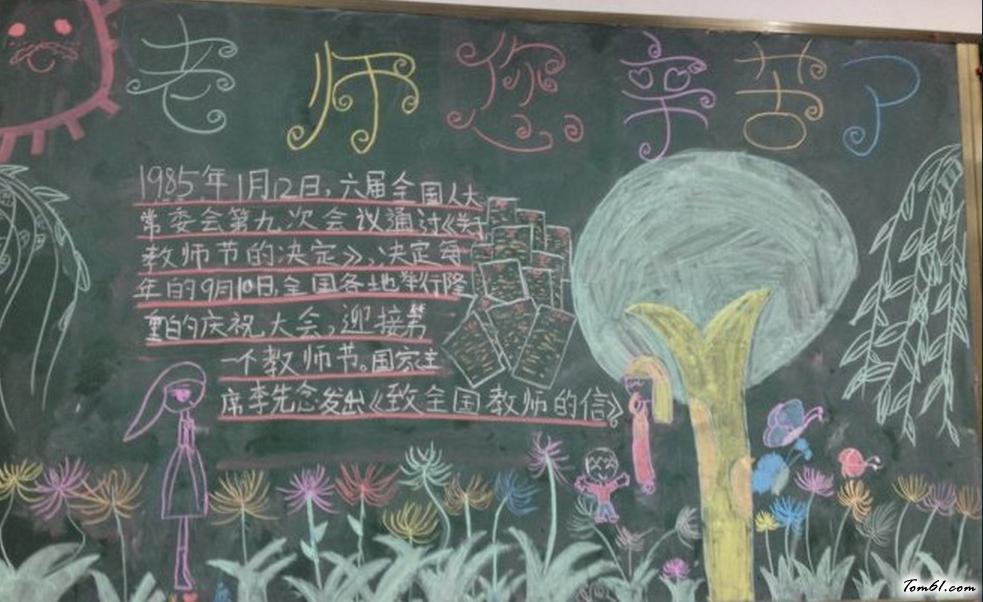 老师您辛苦了
1985年1月12日,六届全国人大
常委会第九次会议通过《关于
教师节的决定》,决定每
年的9月10日,全国各地举行隆
重的庆祝大会,迎接第
一个教师节。国家主
席李先念发出《致全国教师的信》
Tom61.com